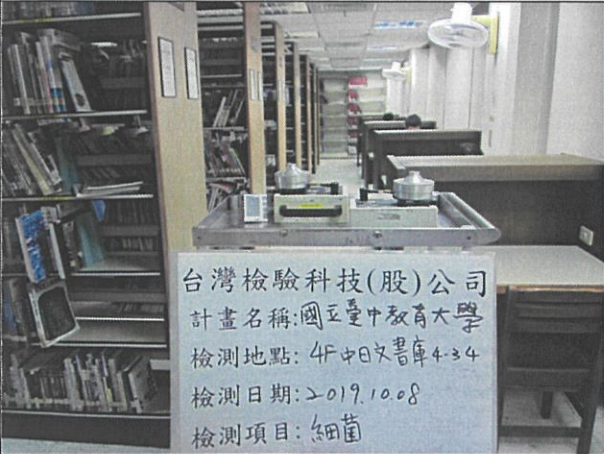 台灣檢驗科技(股)公司
計畫名稱:國立臺中教育大學
檢測地點:4F中日文書庫4-34
檢測日期:2019.10.08
檢測項目:細菌